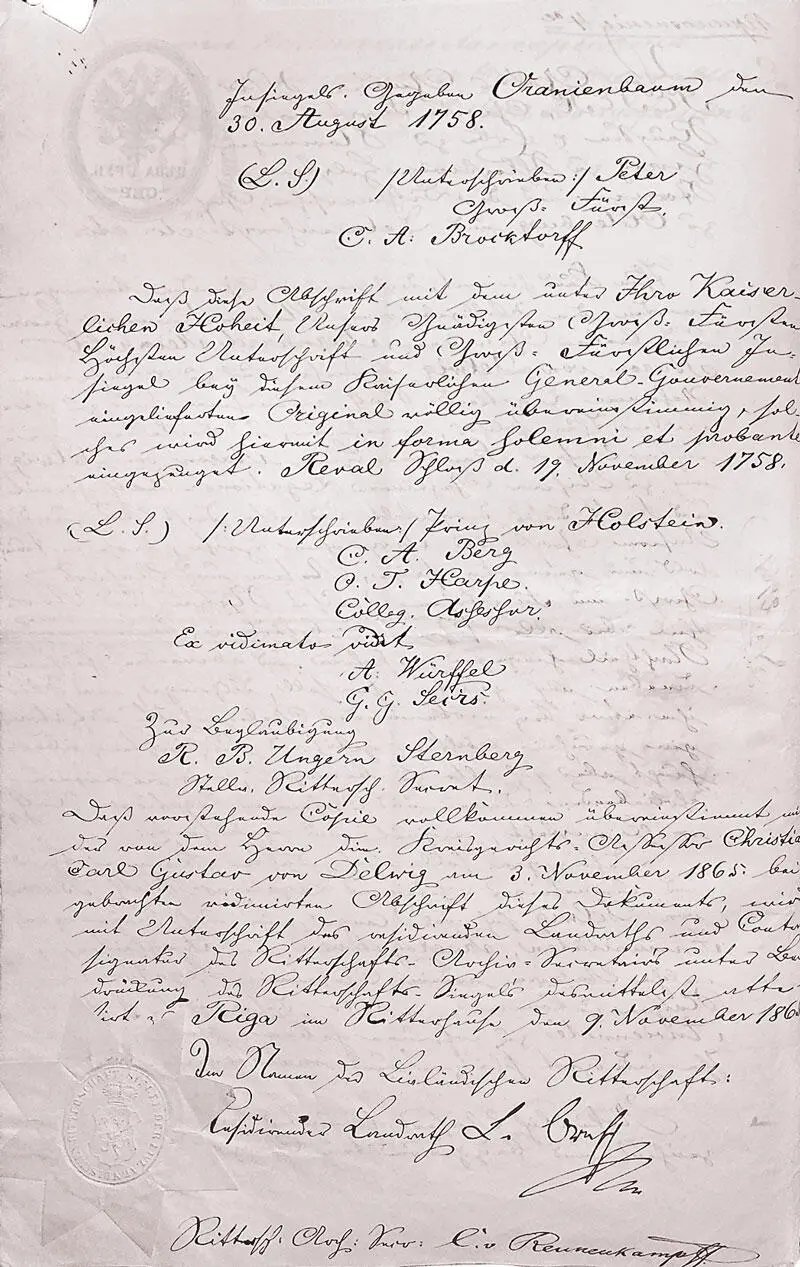 Insiegels. Gegeben Oranienbaum den
30. August 1758.
(L. S.) /:Unterschrieben:/ Peter
Groß-Fürst.
C. A: Brocktorff
Daß diese Abschrift mit dem unter Ihro Kaiser-
lichen Hoheit, Unsers Gnädigsten Groß-Fürsten
Höchsten Unterschrift und Groß-Fürstlichen In-
siegel bey diesem Kaiserlichen General-Gouvernement
eingelieferten Original völlig übereinstimmig, sol-
ches wird hiermit in forma solemni et probante
eingezeuget. Reval Schloß d. 19. November 1758.
(L. S.) /:Unterschrieben:/ Prinz von Holstein.
C. A. Berg
O. T. Harpe
Colleg. Assessor.
Ex vidimato vidit
A. Würffel
G. G. Seirs.
Zur Beglaubigung
R. B. Ungern Sternberg
Stellv. Rittersch. Secret.
Daß vorstehende Copie vollkommen übereinstimmt mi
der von dem Herrn dim. Kreisgerichts-Assessor Christia
Carl Gustav von Delwig am 3. November 1865. bei
gebrachten vidimirten Abschrift dieses Dokuments, wird
mit Unterschrift des residirenden Landraths und Contra
signatur des Ritterschafts-Archiv-Secretairs unter Bei
drückung des Ritterschafts-Siegels desmittelst atte
stirt Riga im Ritterhause den 9. November 186
Im Namen der Livländischen Ritterschaft:
Residirender Landrath L.
Rittersch: Arch: Secr: C. v Rennenkampff